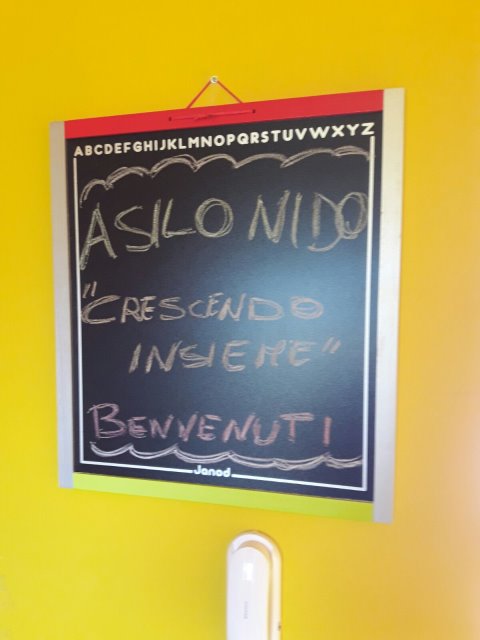 ABCDEFGHIJKLMNOPQRSTUVWXYZ
ASILO NIDO
"CRESCENDO
INSIEME"
BENVENUTI
Janod